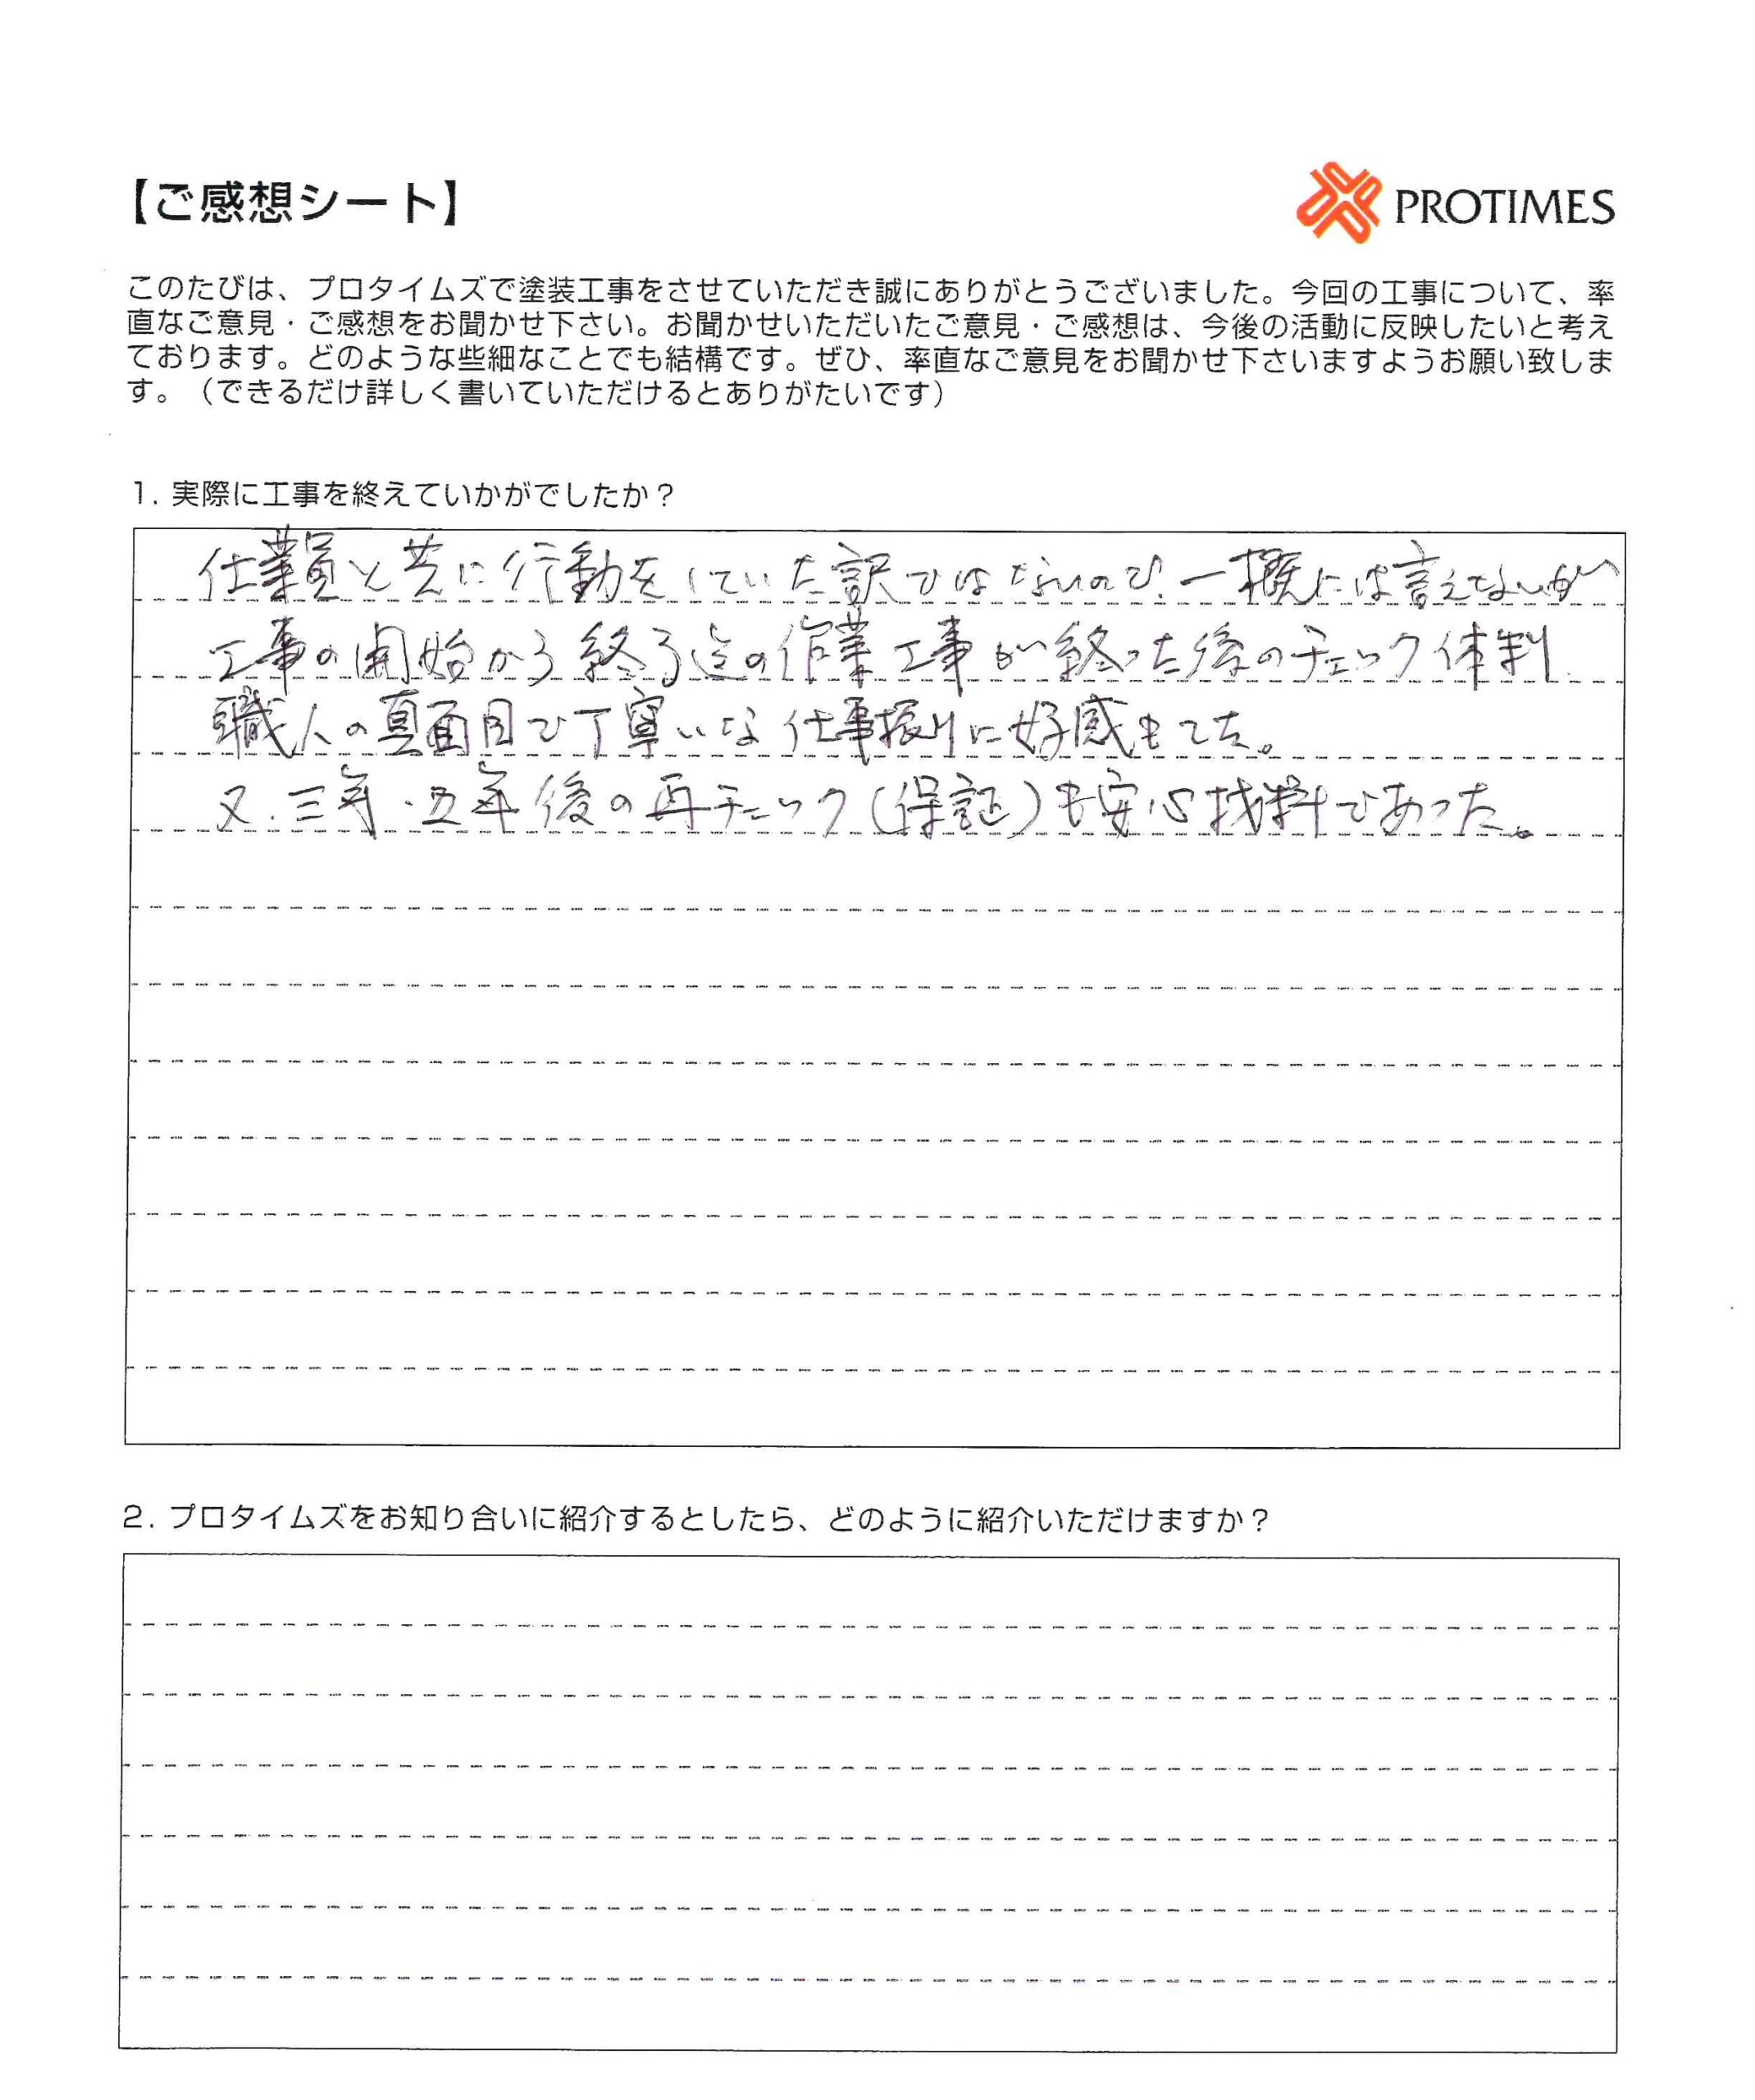 【ご感想シート】
PROTIMES
このたびは、プロタイムズで塗装工事をさせていただき誠にありがとうございました。今回の工事について、率
直なご意見・ご感想をお聞かせ下さい。お聞かせいただいたご意見・ご感想は、今後の活動に反映したいと考え
ております。どのような些細なことでも結構です。ぜひ、率直なご意見をお聞かせ下さいますようお願い致しま
す。（できるだけ詳しく書いていただけるとありがたいです）
1. 実際に工事を終えていかがでしたか？
仕業員と共に行動をしていた訳ではないので、一概には言えないが
工事の開始から終了迄の作業 工事が終った後のチェック体制
職人の真面目で丁寧いな仕事振りに好感もてた。
又、三年・五年後の再チェック（保証）も安心材料であった。
2. プロタイムズをお知り合いに紹介するとしたら、どのように紹介いただけますか？